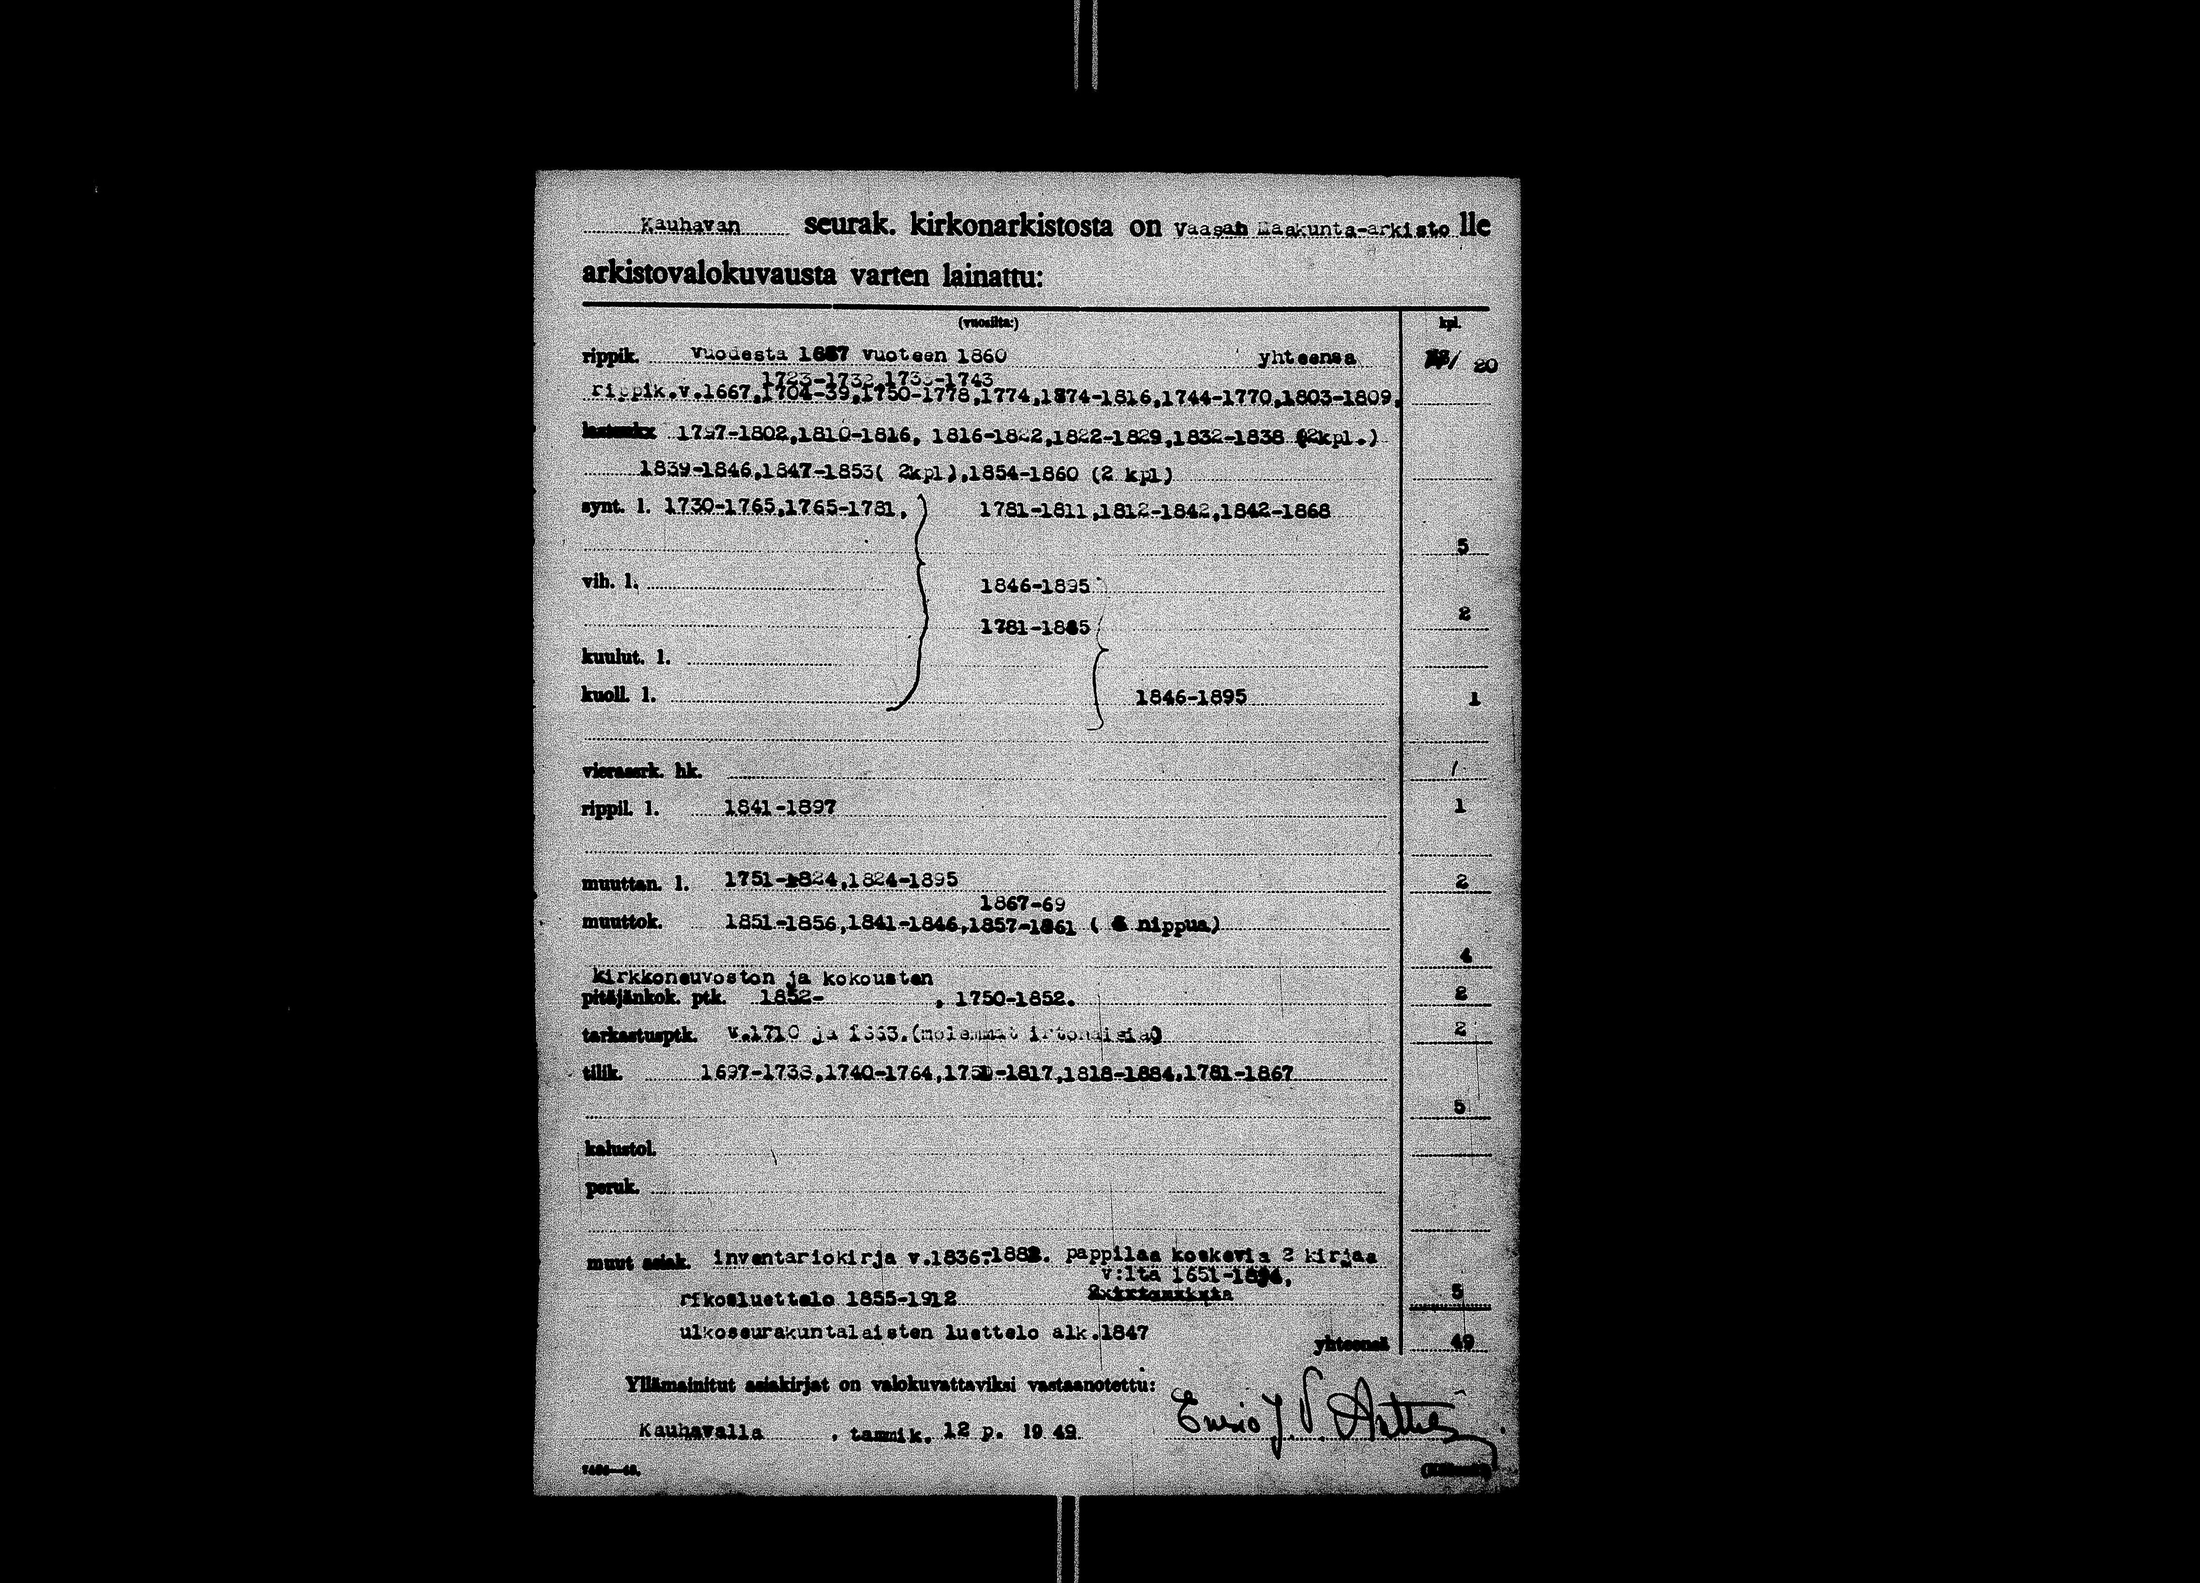 Kauhavan seurak. kirkonarkistosta on Vaasan Maakunta-arkisto lle
arkistovalokuvausta varten lainattu:
(vuosilta:) kpl.
rippik. Vuodesta 1667 vuoteen 1860 yhteensa 20
1723-1732,1733-1743
rippik.v.1667,1704-39,1750-1778,1774,1774-1816,1744-1770,1803-1809,
1797-1802,1810-1816, 1816-1822,1822-1829,1832-1838 (2kpl.)
1839-1846,1847-1853( 2kpl),1854-1860 (2 kpl)
synt. l. 1730-1765,1765-1781, 1781-1811,1812-1842,1842-1868
5
vih. l. 1846-1895
2
1781-1845
kuulut. l.
kuoll. l. 1846-1895 1
vierassrk. hk. /
rippil. l. 1841-1897 1
muuttan. l. 1751-1824,1824-1895 2
1867-69
muuttok. 1851-1856,1841-1846,1857-1861 ( nippua)
4
kirkkoneuvoston ja kokousten
pitäjänkok. ptk. 1852- , 1750-1852. 2
tarkastusptk. v.1710 ja 1663.(molemmat irtonaisia) 2
tilik. 1697-1738,1740-1764,1750-1817,1818-1884,1781-1867
5
kalustol.
peruk.
muut asiak. inventariokirja v.1836-1882. pappilaa koskevia 2 kirjaa
v:lta 1651-
rikosluettelo 1855-1912 5
ulkoseurakuntalaisten luettelo alk.1847
yhteensä 49
Yllämainitut asiakirjat on valokuvattaviksi vastaanotettu:
Kauhavalla , tammik. 12 p. 19 49